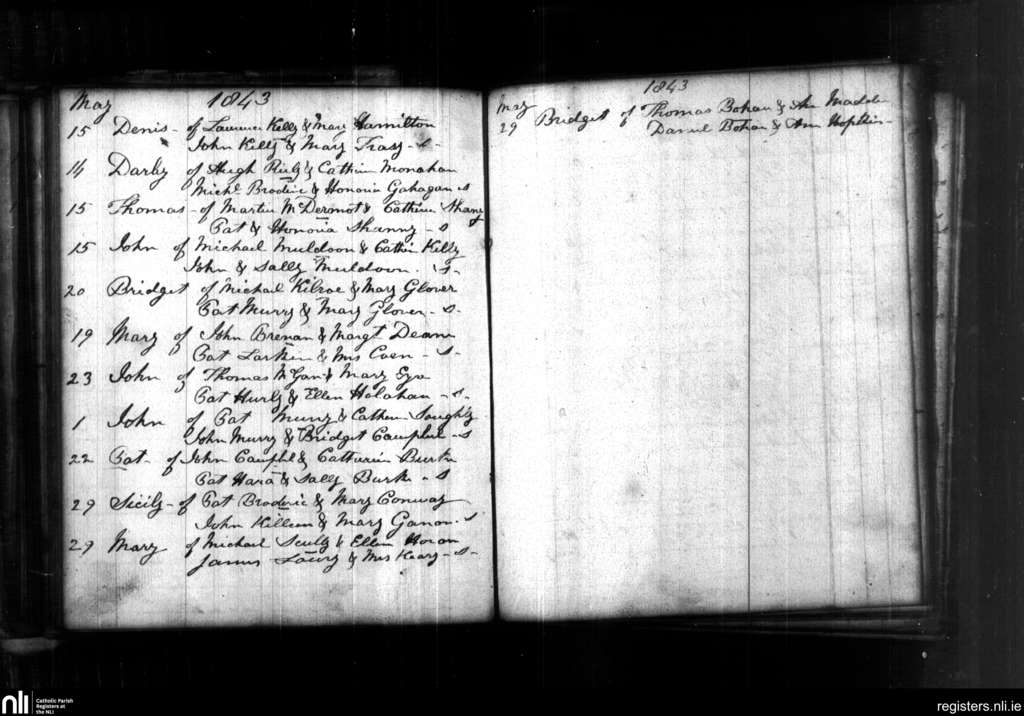 May 1843
15 Denis - of Laurence Kelly & Mary Hamilton
John Kelly & Mary Trasy - s -
14 Darby of Hugh & Cathrin Monahan
Michl Broderic & Honoria Gahagan s
15 Thomas - of Martin McDermot & Catherin Shany
Pat & Honoria Shanny - s
15 John of Michael Muldoon & Cathrin Kelly
John & Sally Muldoon. s -
20 Bridget of Michael Kilroe & Mary Glover
Pat Murry & Mary Glover - s -
19 Mary of John Brenan & Margt Deane
Pat Larkin & Mrs Coen - s -
23 John of Thomas & Mary
Pat Hurly & Ellen Holahan - s -
1 John of Pat Murry & Cathrin
John Murry & Bridget - s
22 Pat - of John & Catherin Burke
Pat Hara & Sally Burke - s
29 Sicily - of Pat Broderic & Mary Conway
John Killeen & Mary Ganon - s
29 Mary of Michael Scully & Ellen Horan
James & Mrs Keary - s -
1843
May
29 Bridget of Thomas Bohan & Ann Madden
Daniel Bohan & Ann Hopkins -
nli
Catholic Parish
Registers at
the NLI
registers.nli.ie